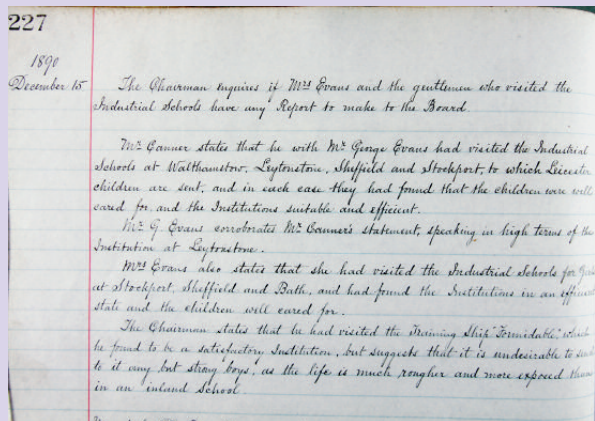 227
1890
December 15
The Chairman inquires if Mrs Evans and the gentlemen who visited the
Industrial Schools have any Report to make to the Board.
Mr Canner states that he with Mr George Evans had visited the Industrial
Schools at Walthamstow, Leytonstone, Sheffield and Stockport, to which Leicester
children are sent, and in each case they had found that the children were well
cared for and the Institutions suitable and efficient.
Mr G. Evans corroborates Mr Canner's statement, speaking in high terms of the
Institution at Leytonstone.
Mrs Evans also states that she had visited the Industrial Schools for Girls
at Stockport, Sheffield and Bath, and had found the Institutions in an efficient
state and the children well cared for.
The Chairman states that he had visited the Training Ship "Formidable," which
he found to be a satisfactory Institution, but suggests that it is undesirable to send
to it any but strong boys, as the life is much rougher and more exposed than
in an inland School.